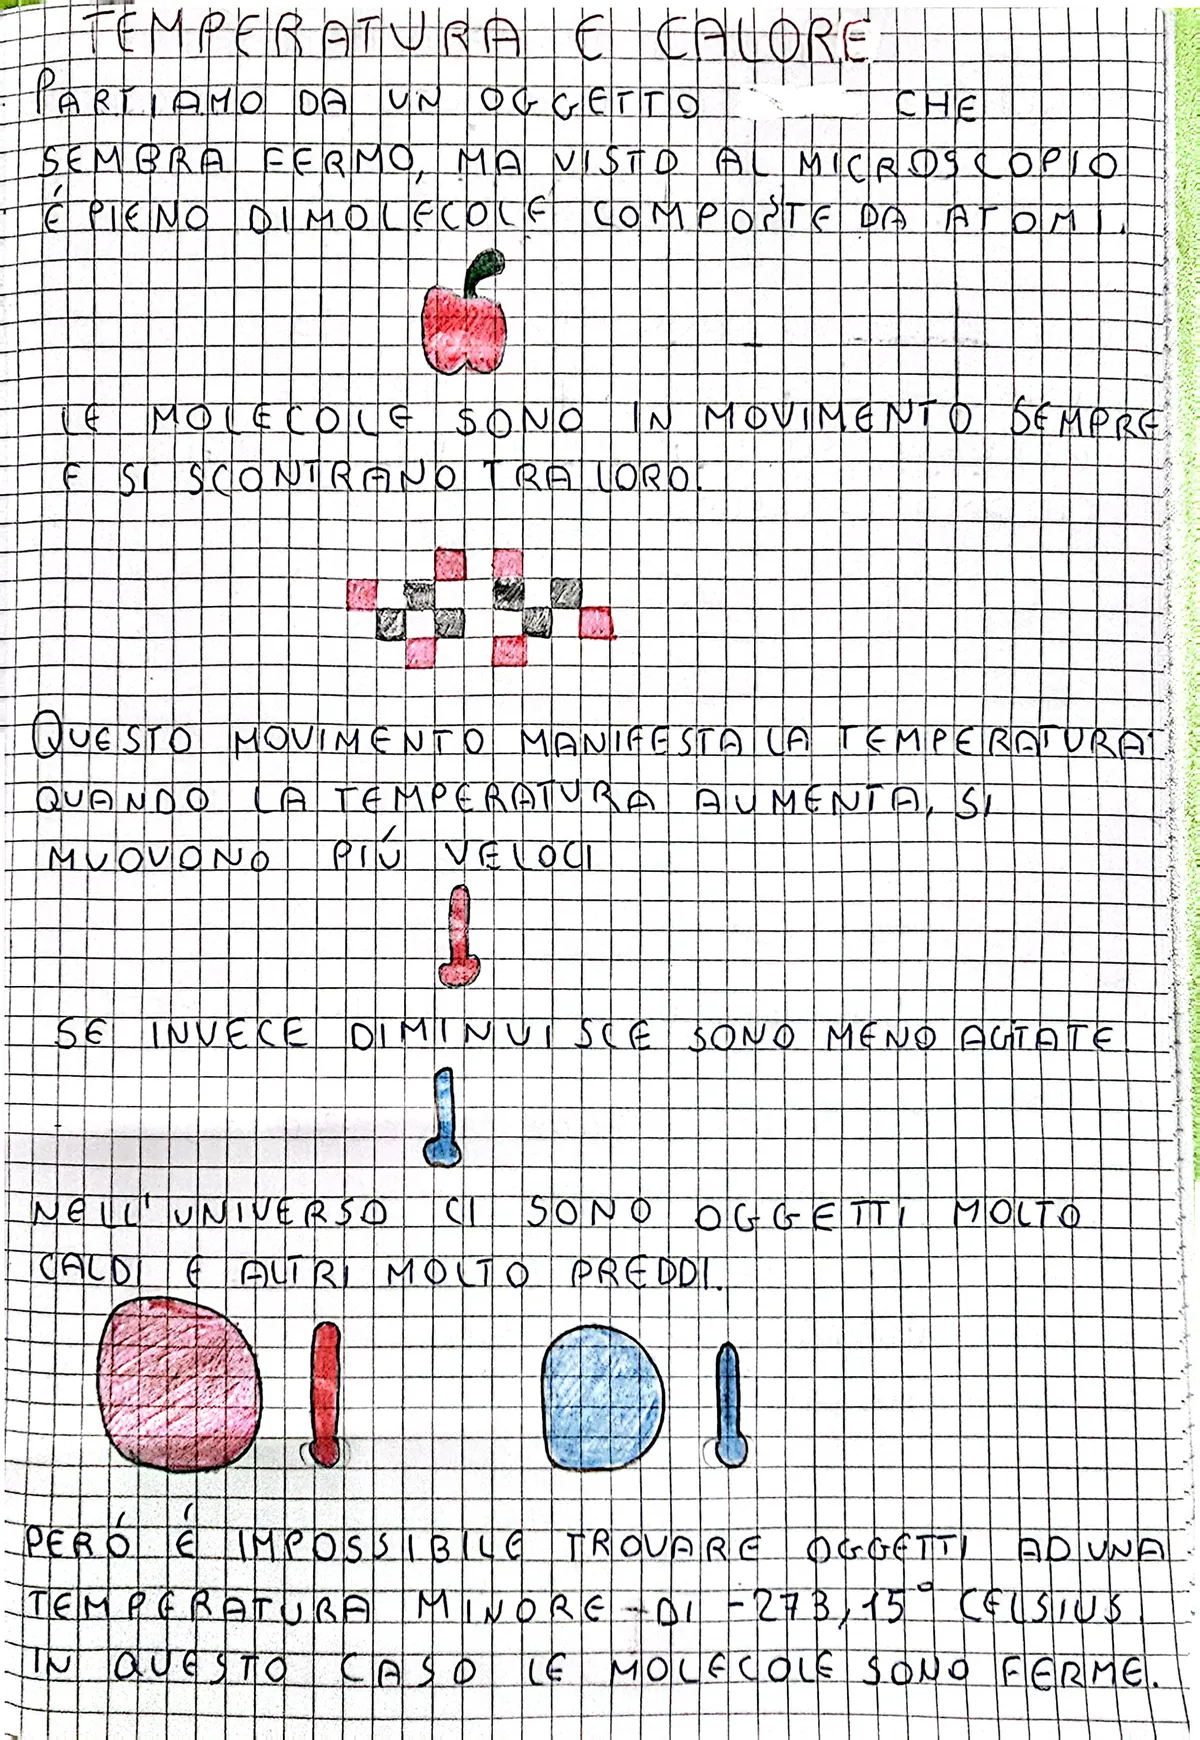 TEMPERATURA E CALORE
PARTIAMO DA UN OGGETTO CHE
SEMBRA FERMO, MA VISTO AL MICROSCOPIO
É PIENO DI MOLECOLE COMPOSTE DA ATOMI.
LE MOLECOLE SONO IN MOVIMENTO SEMPRE
E SI SCONTRANO TRA LORO.
QUESTO MOVIMENTO MANIFESTA LA TEMPERATURA
QUANDO LA TEMPERATURA AUMENTA, SI
MUOVONO PIÚ VELOCI
SE INVECE DIMINUISCE SONO MENO AGITATE
NELL'UNIVERSO CI SONO OGGETTI MOLTO
CALDI E ALTRI MOLTO PREDDI.
PERÓ É IMPOSSIBILE TROVARE OGGETTI AD UNA
TEMPERATURA MINORE DI -273,15° CELSIUS
IN QUESTO CASO LE MOLECOLE SONO FERME.